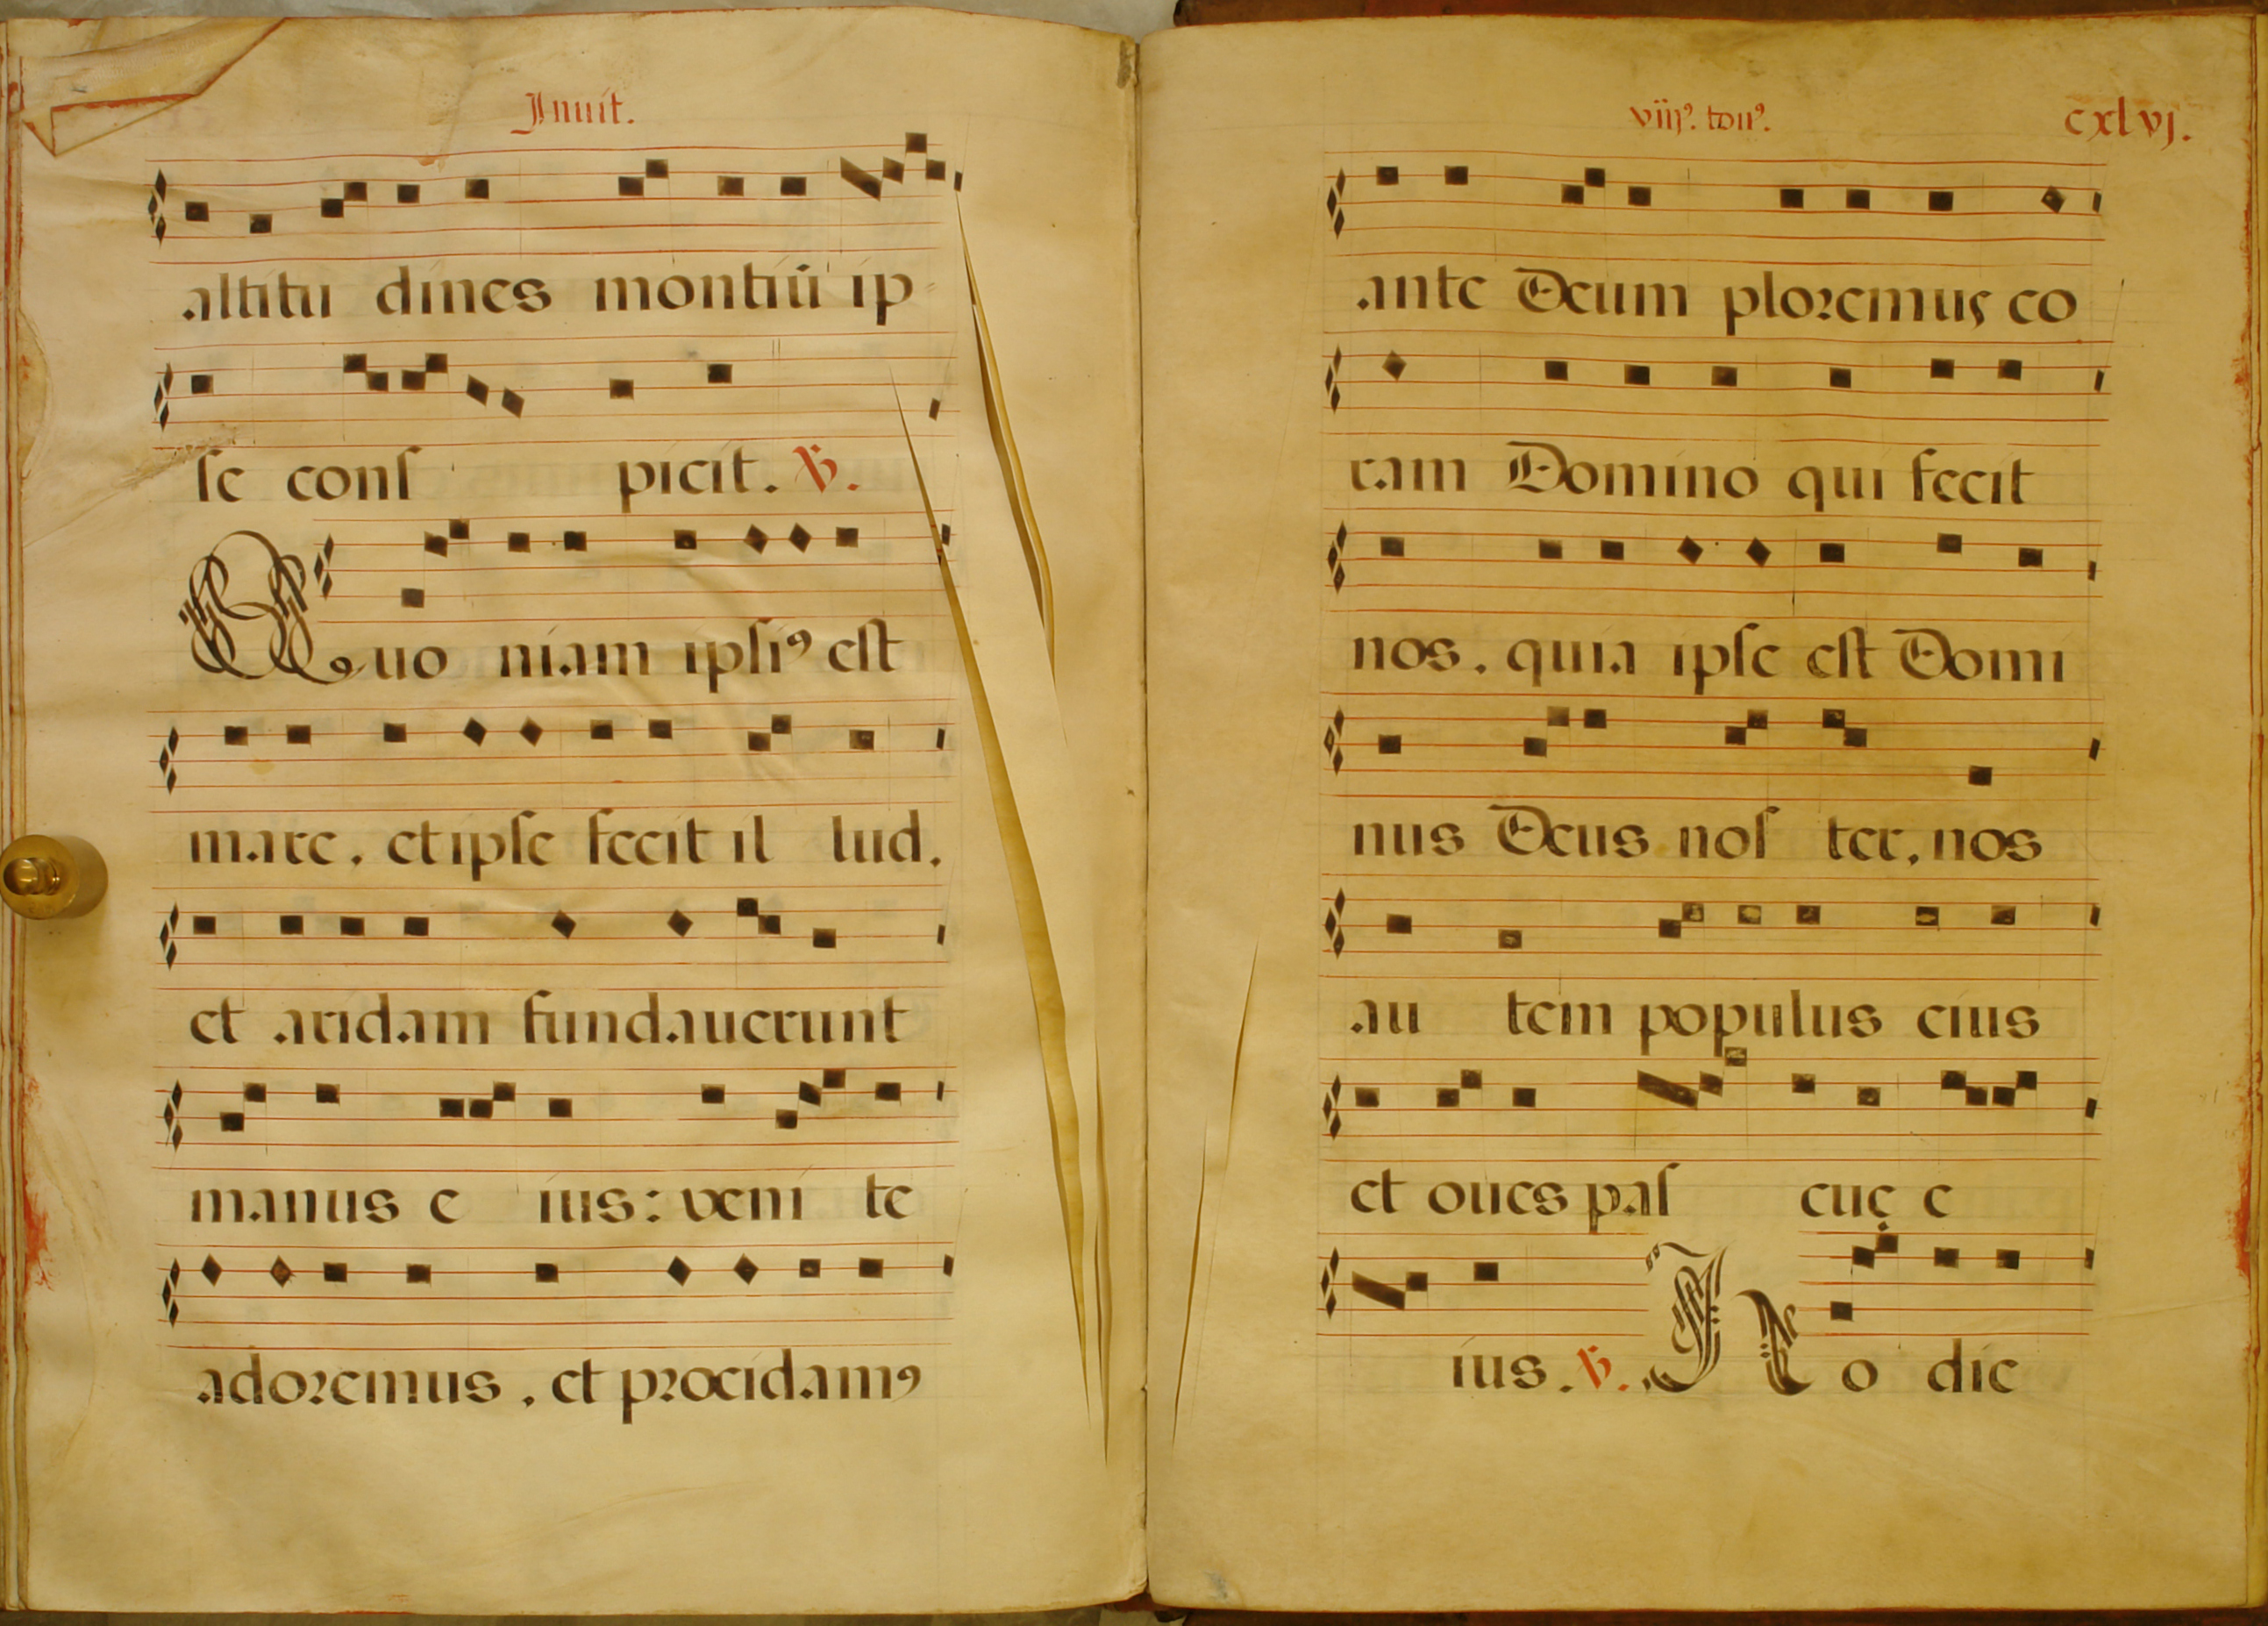 Inuit.
altitu dines montiū ip
se cons picit. ℣.
Quo niam ipsiꝰ est
mare. et ipse fecit il lud.
et aridam fundauerunt
manus e ius: veni te
adoremus. et procidamꝰ
viijꝰ. tonꝰ. cxlvj.
ante Deum ploremus co
ram Domino qui fecit
nos. quia ipse est Domi
nus Deus nos ter, nos
au tem populus eius
et oues pas cuę e
ius. ℣. Ho die